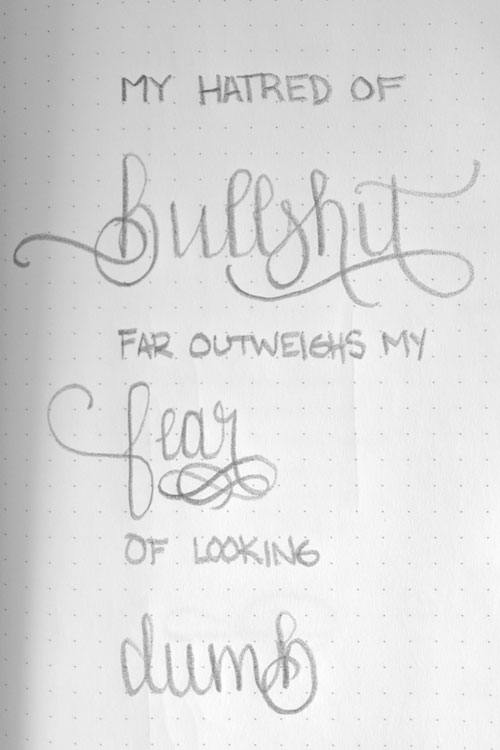 MY HATRED OF
bullshit
FAR OUTWEIGHS MY
fear
OF LOOKING
dumb